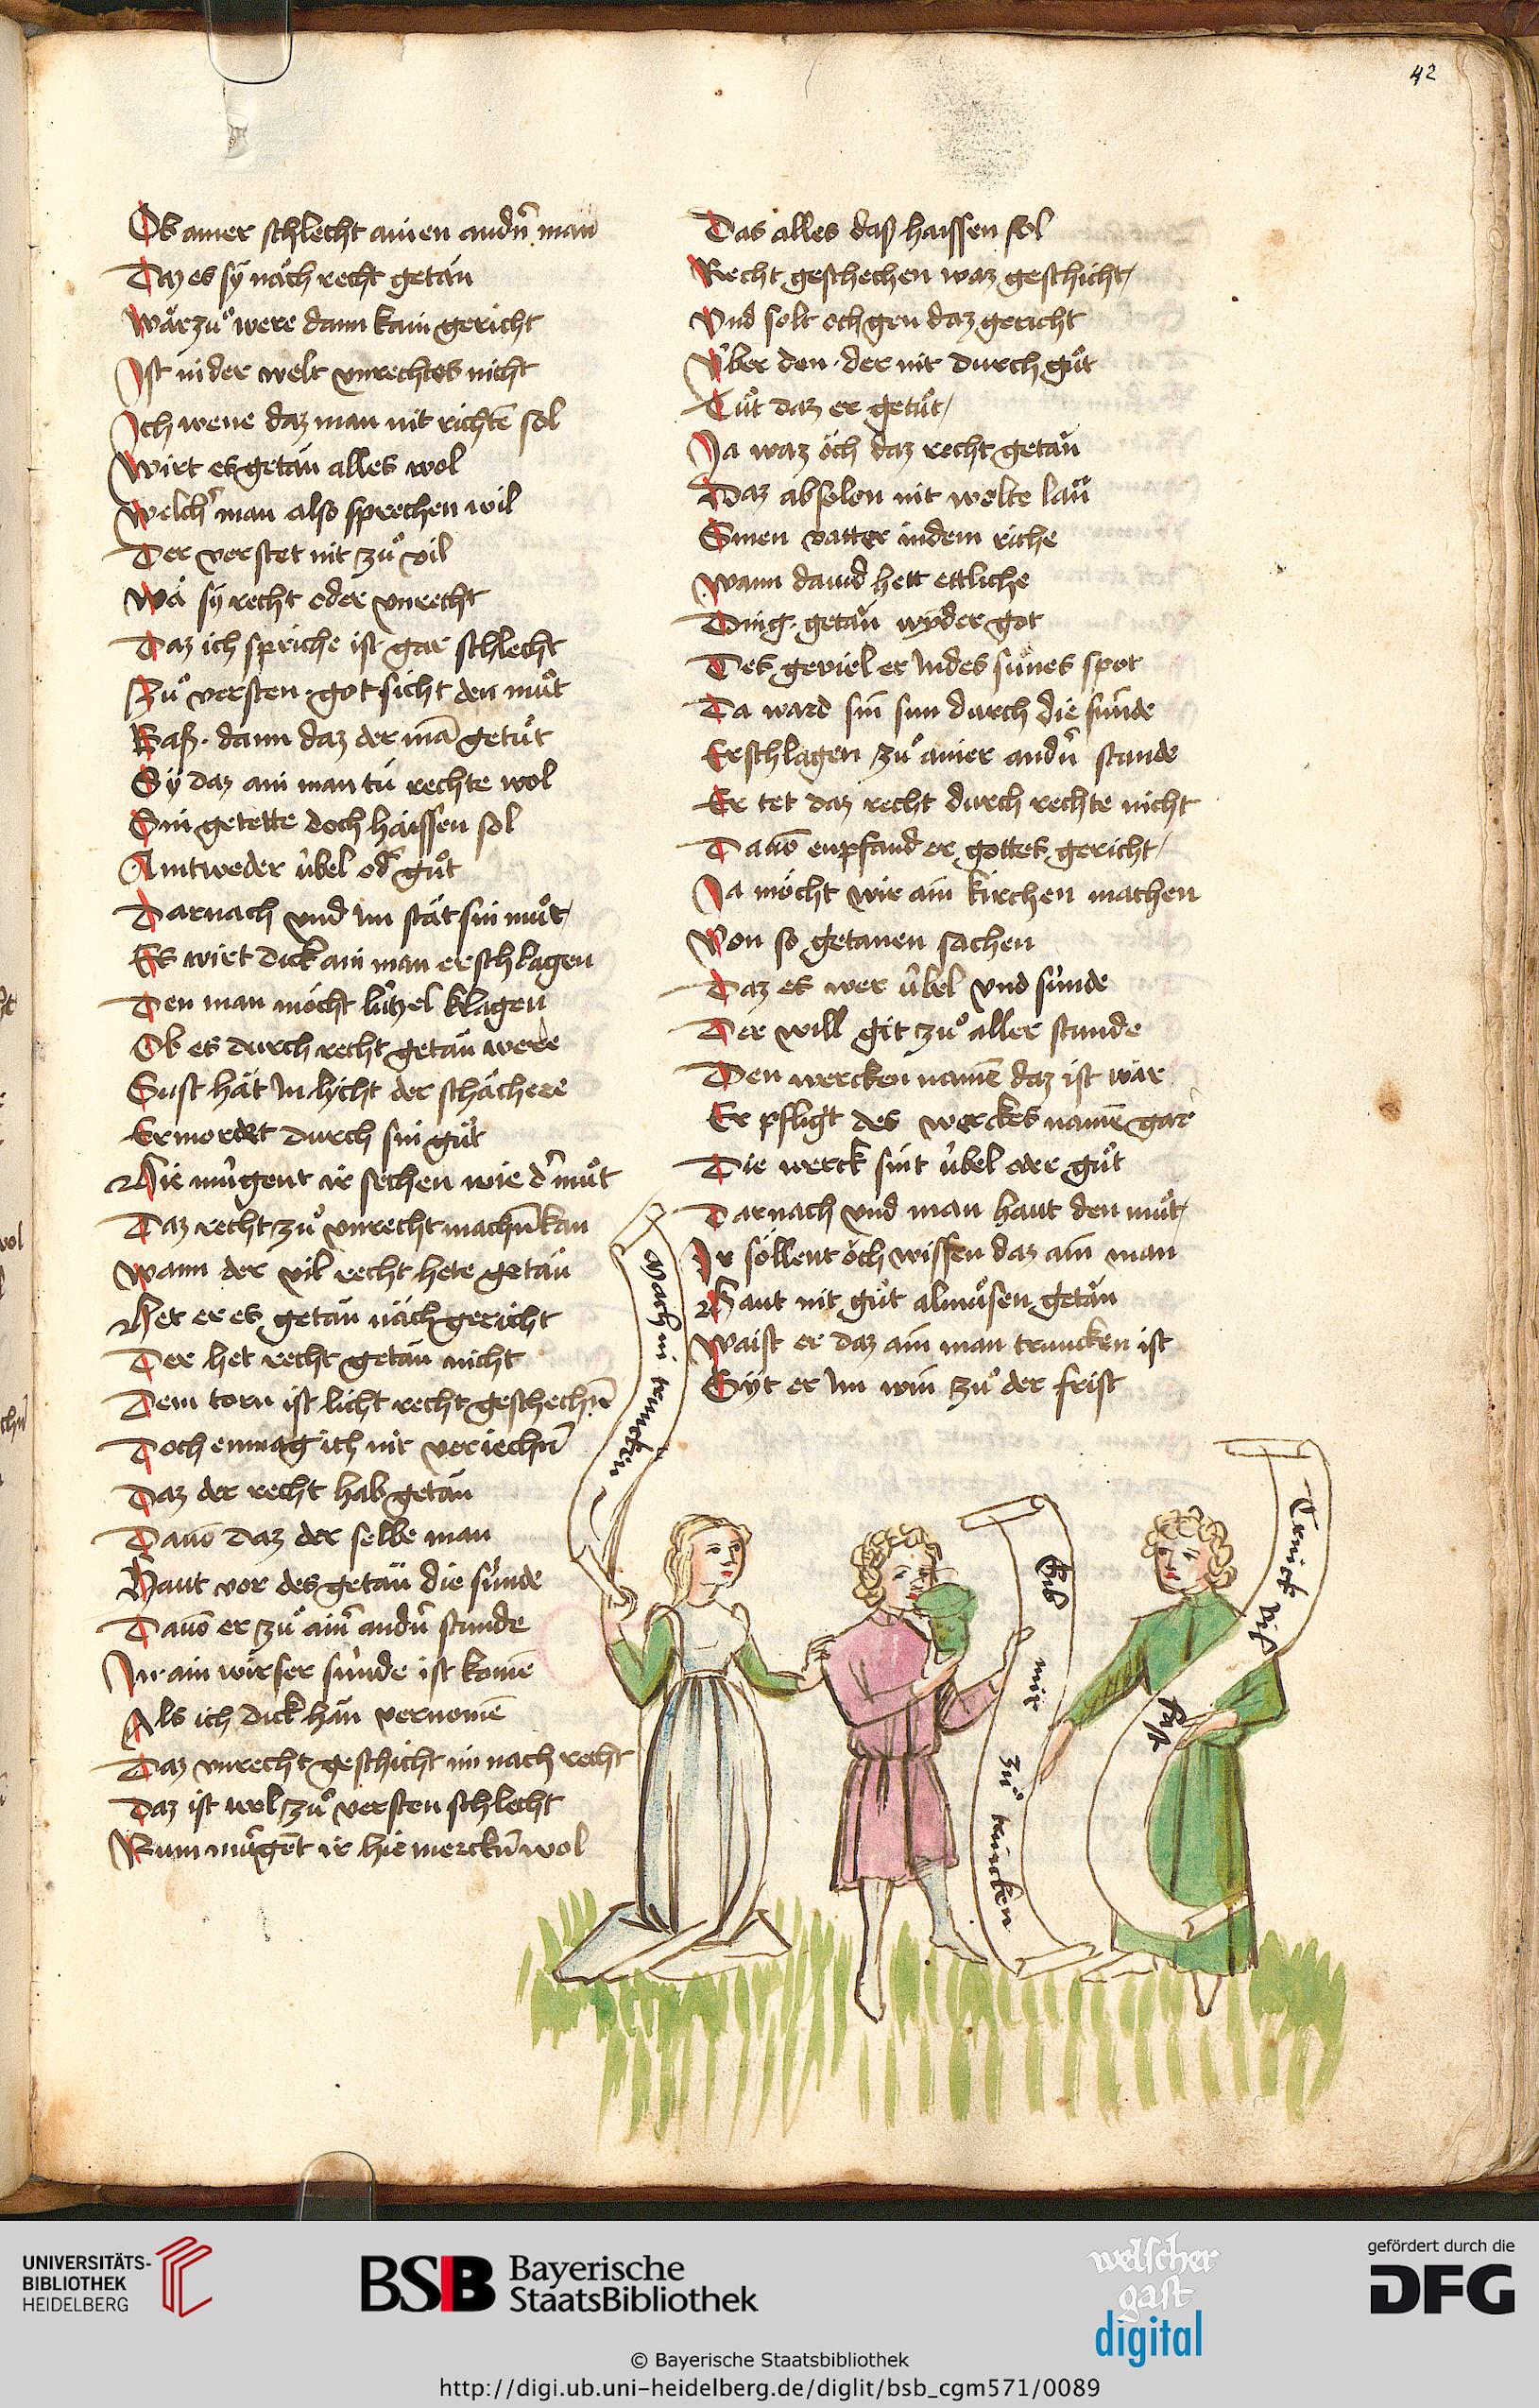 42
Ob ainer schlecht ainen andn̄ man
Daz es sÿ năch recht getăn
Wărzuͦ were dann kain gericht
Ist in der welt vnrechtes nicht
Ich wene daz man nit richtē sol
Wirt es getăn alles wol
Welch̄ man also sprechen wil
Der verstet nit zuͦ vil
Wă sÿ recht oder vnrecht
Daz ich spriche ist gar schlecht
Zuͦ versten · got sicht den muͦt
Baß · dann daz der mā getuͦt
Sÿ daz ain man tuͤ rechte wol
Sin getette doch haissen sol
Aintweder uͤbel od̄ guͦt
Darnach vnd im stăt sin muͦt /
Es wirt dick ain man erschlagen
Den man moͤcht luͤtzel klagen
Ob es durch recht getăn were
Sust hăt in lycht der schăchere
Ermordet durch sin guͦt
Hie muͤgent ir sechen wie d̄ muͦt
Daz recht zuͦ vnrecht machn̄ kan
Wann der vil recht hete getăn
Het er es getăn năch gericht
Der het recht getăn nicht
Dem torn ist licht recht geschechn̄
Doch enmag ich nit veriechn̄
Daz der recht hab getăn
Dauō daz der selbe man
Haut vor des getăn die suͤnde
Dauō er zuͦ ain̄ andn̄ stunde
In ain wirser suͤnde ist komē
Als ich dick hăn vernomē
Daz vnrecht geschicht im nach recht
Daz ist wol zuͦ versten schlecht
Nun muͤgēt ir hie merckn̄ wol
Das alles daß haissen sol
Recht geschechen waz geschicht /
Vnd solt och gen daz gericht
Vͤber den · der nit durch guͦt
Tuͦt daz er getuͦt /
Ja waz oͤch daz recht getăn
Daz absolon nit wolte lăn
Sinen vatter in dem riche
Wann dauid hett ettliche
Ding · getăn wÿder got
Des geviel er in des sunes spot
Da ward sin sun durch die suͤnde
Erschlagen zuͦ ainer andn̄ stunde
Er tet daz recht durch rechte nicht
Dauō enpfand er gottes gericht /
Ja moͤcht wir ain kirchen machen
Von so getanen sachen
Daz es wer uͤbel vnd suͤnde
Der will git zuͦ aller stunde
Den wercken namē daz ist wăr
Er pfligt des werckes namē gar
Die werck sint uͤbel oder guͦt
Darnach vnd man haut den muͦt /
Ir soͤllent oͤch wissen daz ain man
Haut nit guͦt almuͦsen getăn
Waist er daz ain man truncken ist
Gÿt er im win zuͦ der frist
Mach in trunckn̄
Gib mir zuͦ trincken
Trinck biß
UNIVERSITÄTS-
BIBLIOTHEK
HEIDELBERG
BSB Bayerische
StaatsBibliothek
welscher
gast
digital
gefördert durch die
DFG
© Bayerische Staatsbibliothek
http://digi.ub.uni-heidelberg.de/diglit/bsb_cgm571/0089